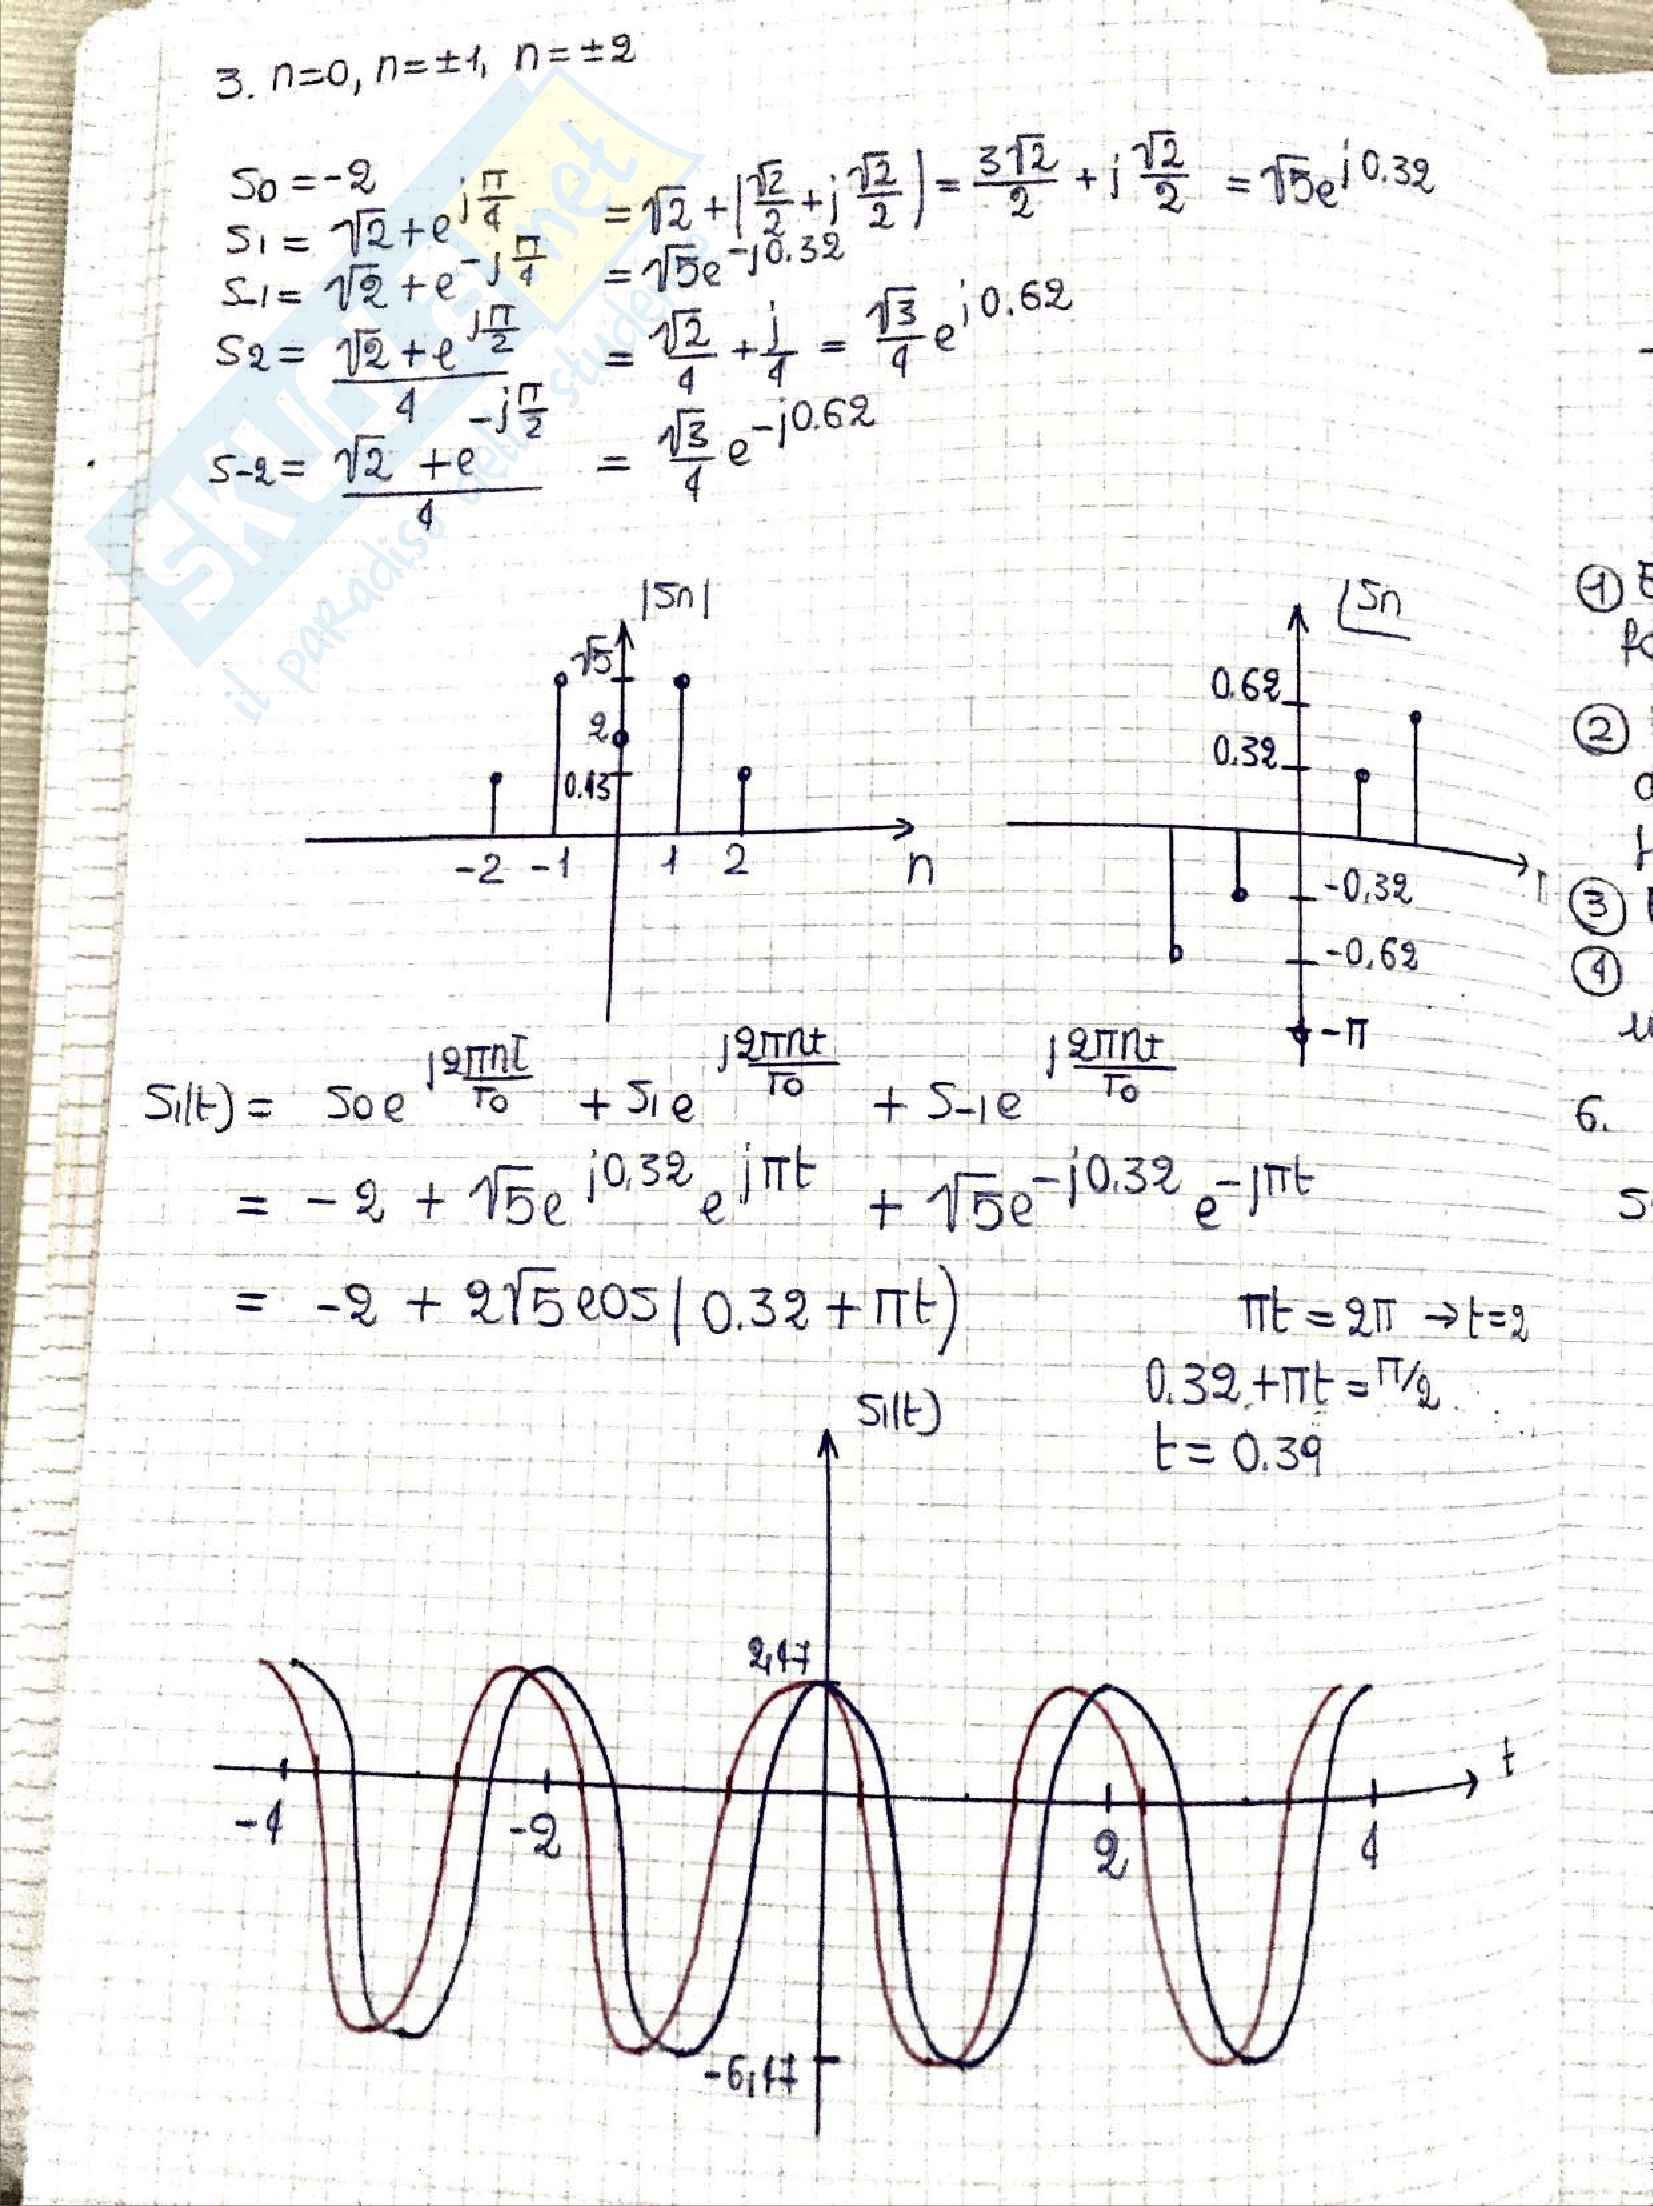 3. n=0, n=±1, n=±2
S0 = -2
S1 = √2 + e^{jπ/4} = √2 + (√2/2 + j√2/2) = 3√2/2 + j√2/2 = √5e^{j0.32}
S-1 = √2 + e^{-jπ/4} = √5e^{-j0.32}
S2 = (√2 + e^{jπ/2})/4 = √2/4 + j/4 = √3/4 e^{j0.62}
S-2 = (√2 + e^{-jπ/2})/4 = √3/4 e^{-j0.62}
SKUOLA.net
il paradiso dello studente
|Sn|
√5
2
0.43
-2 -1 1 2 n
∠Sn
0.62
0.32
-0,32
-0,62
-π
S1(t) = S0e^{j2πnt/T0} + S1e^{j2πnt/T0} + S-1e^{j2πnt/T0}
= -2 + √5e^{j0,32} e^{jπt} + √5e^{-j0.32} e^{-jπt}
= -2 + 2√5cos(0.32 + πt)
πt = 2π → t=2
0.32 + πt = π/2
t = 0.39
S1(t)
2,47
t
-4 -2 2 4
-6,47
1
2
3
4
6.